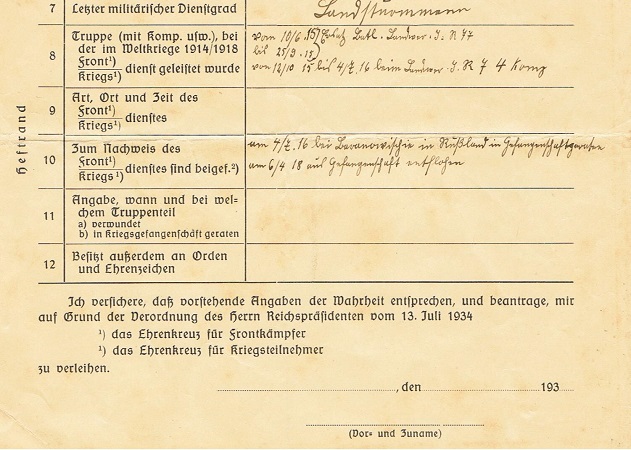 7 Letzter militärischer Dienstgrad Landsturmmann
8 Truppe (mit Komp. usw.), bei der im Weltkriege 1914/1918 Front¹) Kriegs¹) dienst geleistet wurde
vom 10/6.15) Ersatz Batl. Landw. J. R 77
bis 25/9.15)
von 12/10 15 bis 4/7.16 beim Landw. J. R 7 4 Komp
9 Art, Ort und Zeit des Front¹) Kriegs¹) dienstes
Heftrand
10 Zum Nachweis des Front¹) Kriegs¹) dienstes sind beigef.²)
am 4/7.16 bei Baranowischie in Rußland in Gefangenschaft geraten
am 6/4 18 aus Gefangenschaft entflohen
11 Angabe, wann und bei wel=
chem Truppenteil
a) verwundet
b) in Kriegsgefangenschaft geraten
12 Besitzt außerdem an Orden
und Ehrenzeichen
Ich versichere, daß vorstehende Angaben der Wahrheit entsprechen, und beantrage, mir
auf Grund der Verordnung des Herrn Reichspräsidenten vom 13. Juli 1934
¹) das Ehrenkreuz für Frontkämpfer
¹) das Ehrenkreuz für Kriegsteilnehmer
zu verleihen.
, den 193
(Vor= und Zuname)